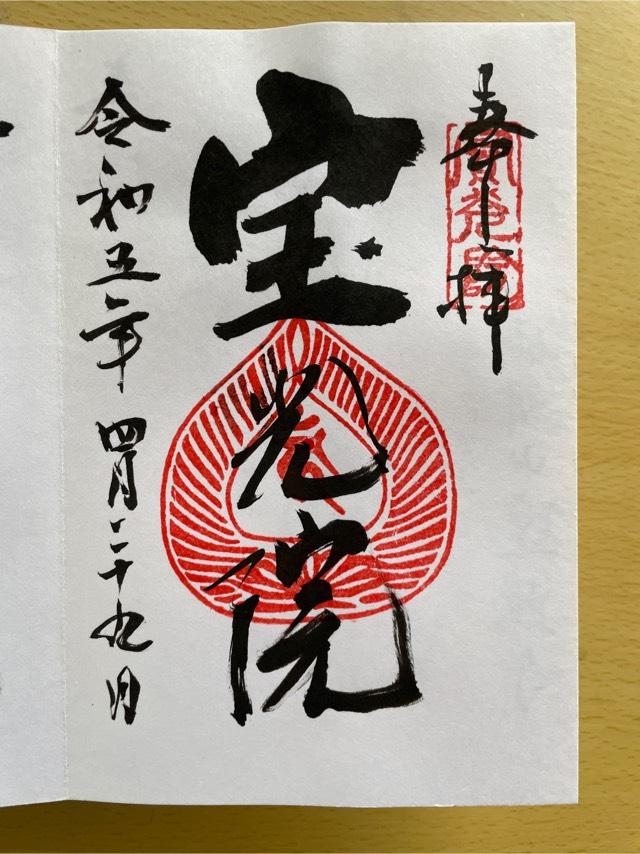 奉拝
宝光院
令和五年四月二十九日